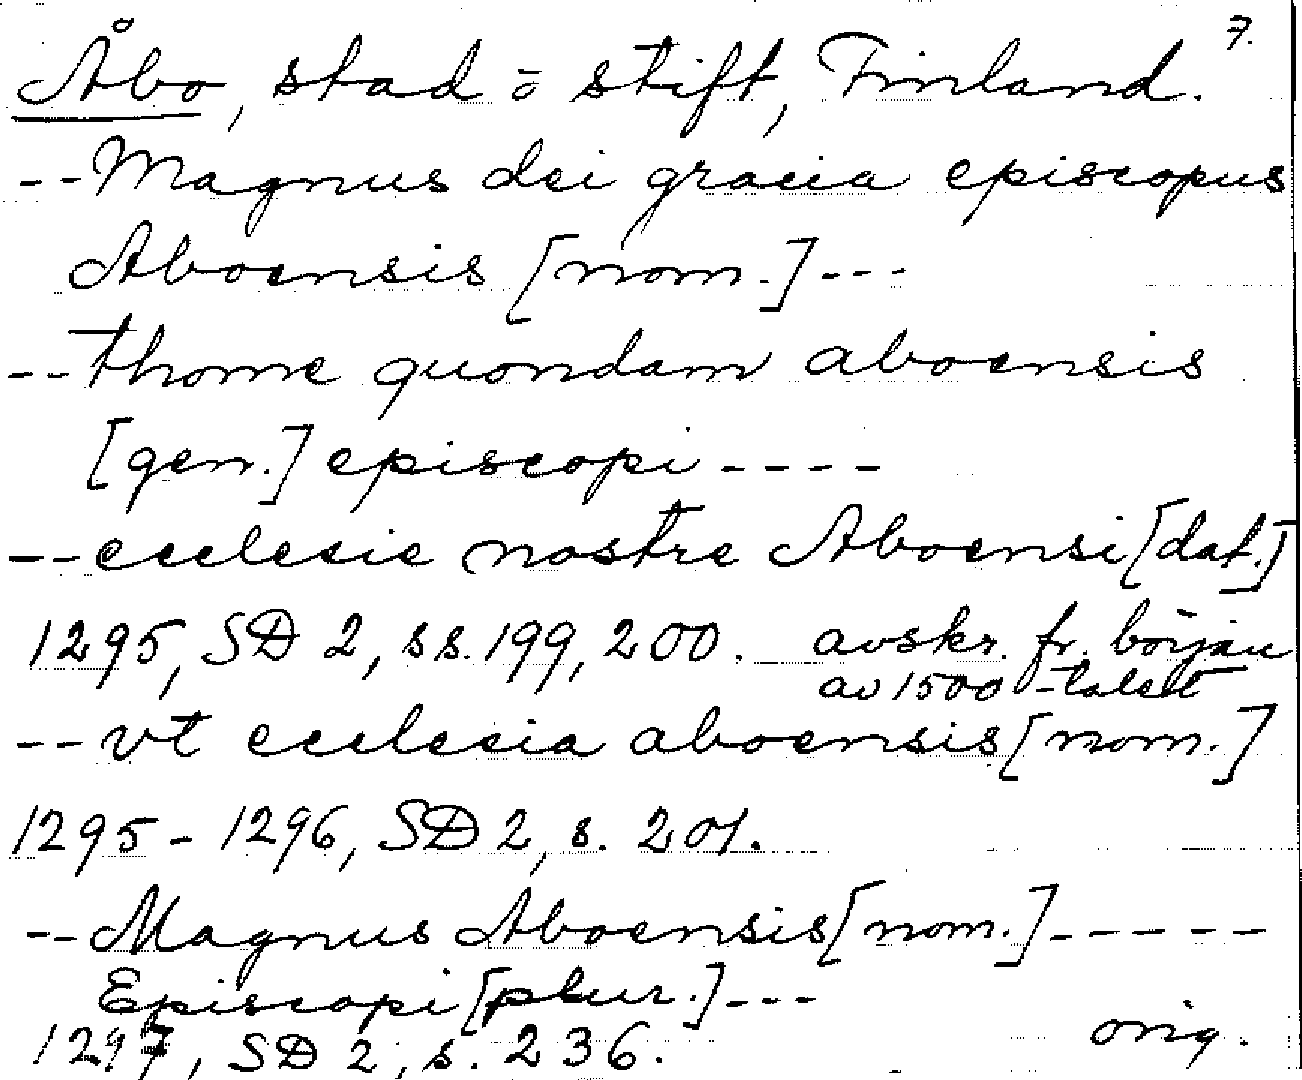 7.
Åbo, stad o stift, Finland.
--Magnus dei gracia episcopus
Aboensis [nom.]---
--thome quondam aboensis
[gen.] episcopi----
--ecclesie nostre Aboensi [dat.]
1295, SD 2, ss. 199, 200. avskr. fr. början
av 1500-talet
--vt ecclesia aboensis [nom.]
1295-1296, SD 2, s. 201.
--Magnus Aboensis [nom.]-----
Episcopi [plur.]---
orig.
1297, SD 2, s. 236.